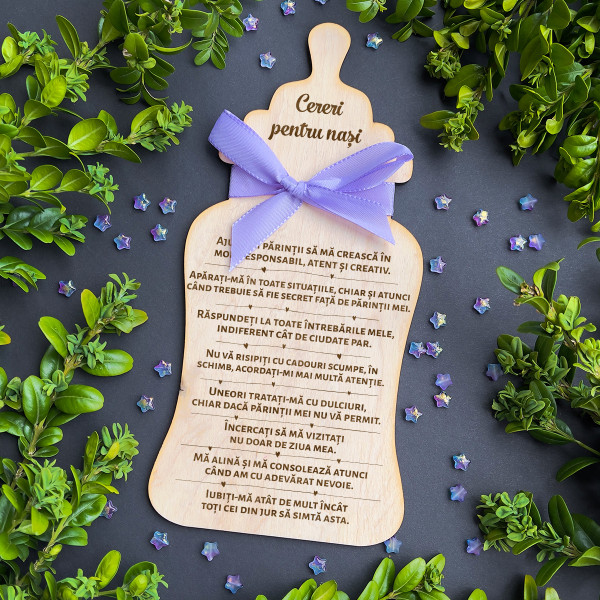 Cereri
pentru nași
PĂRINȚII SĂ MĂ CREASCĂ ÎN
RESPONSABIL, ATENT ȘI CREATIV.
APĂRAȚI-MĂ ÎN TOATE SITUAȚIILE, CHIAR ȘI ATUNCI
CÂND TREBUIE SĂ FIE SECRET FAȚĂ DE PĂRINȚII MEI.
RĂSPUNDEȚI LA TOATE ÎNTREBĂRILE MELE,
INDIFERENT CÂT DE CIUDATE PAR.
NU VĂ RISIPIȚI CU CADOURI SCUMPE, ÎN
SCHIMB, ACORDAȚI-MI MAI MULTĂ ATENȚIE.
UNEORI TRATAȚI-MĂ CU DULCIURI,
CHIAR DACĂ PĂRINȚII MEI NU VĂ PERMIT.
ÎNCERCAȚI SĂ MĂ VIZITAȚI
NU DOAR DE ZIUA MEA.
MĂ ALINĂ ȘI MĂ CONSOLEAZĂ ATUNCI
CÂND AM CU ADEVĂRAT NEVOIE.
IUBIȚI-MĂ ATÂT DE MULT ÎNCÂT
TOȚI CEI DIN JUR SĂ SIMTĂ ASTA.